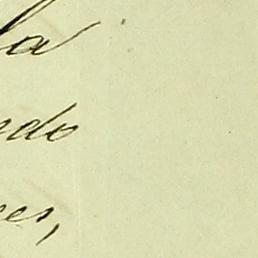 la
ndo
es,